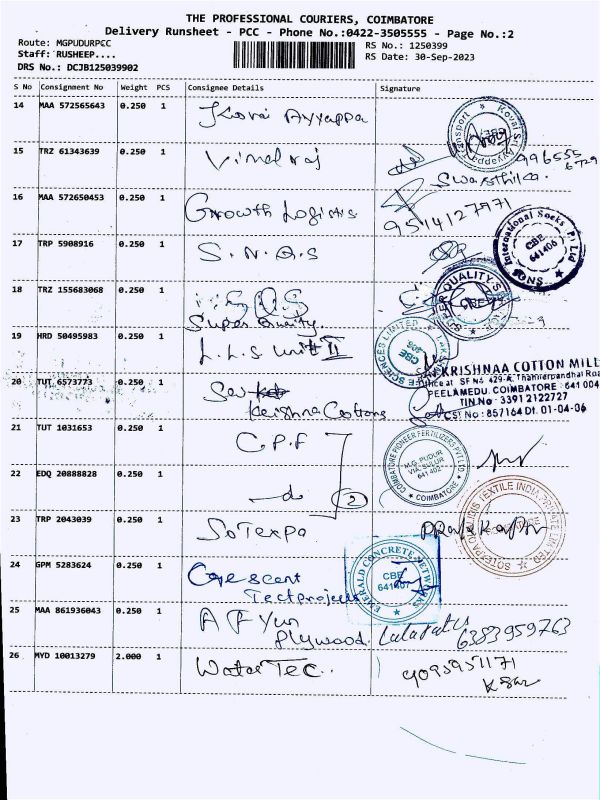 THE PROFESSIONAL COURIERS, COIMBATORE
Delivery Runsheet - PCC - Phone No.:0422-3505555 - Page No.:2
Route: MGPUDURPCC
RS No.: 1250399
Staff: RUSHEEP....
RS Date: 30-Sep-2023
DRS No.: DCJB125039902
S No Consignment No Weight PCS Consignee Details Signature
14 MAA 572565643 0.250 1 Kovai Ayyappa
15 TRZ 61343639 0.250 1 Vimal raj
Swasthika
16 MAA 572650453 0.250 1 Growth Logistis
9514127971
17 TRP 5908916 0.250 1 S.N.Q.S
International Socks (P) Ltd
CBE
641406
18 TRZ 155683068 0.250 1 SQS
Super Quality
SUPER QUALITY
19 HRD 50495983 0.250 1 L.L.S unit II
CBE
20 TUT 6573773 0.250 1 Sai
Krishna Cottons
KRISHNAA COTTON MILL
Office at SF No 429-A, Thaneerpandhal Road
PEELAMEDU, COIMBATORE 641 004
TIN No 33912122727
CST No : 857164 Dt. 01-04-06
21 TUT 1031653 0.250 1 C.P.F
COIMBATORE PIONEER FERTILIZERS PVT LTD
M.G. PUDUR
VIA. SULUR
641 402
COIMBATORE
22 EDQ 20888828 0.250 1 do 2
23 TRP 2043039 0.250 1 SoTexpa
SOTEXPA QUALIDIS TEXTILE INDIA PRIVATE LIMITED
24 GPM 5283624 0.250 1 Crescent
Tectprojects
EMERALD CONCRETE NETWORKS
CBE
641407
25 MAA 861936043 0.250 1 A F Yun
Plywood
6383959763
26 MYD 10013279 2.000 1 WaterTec.
9095951171